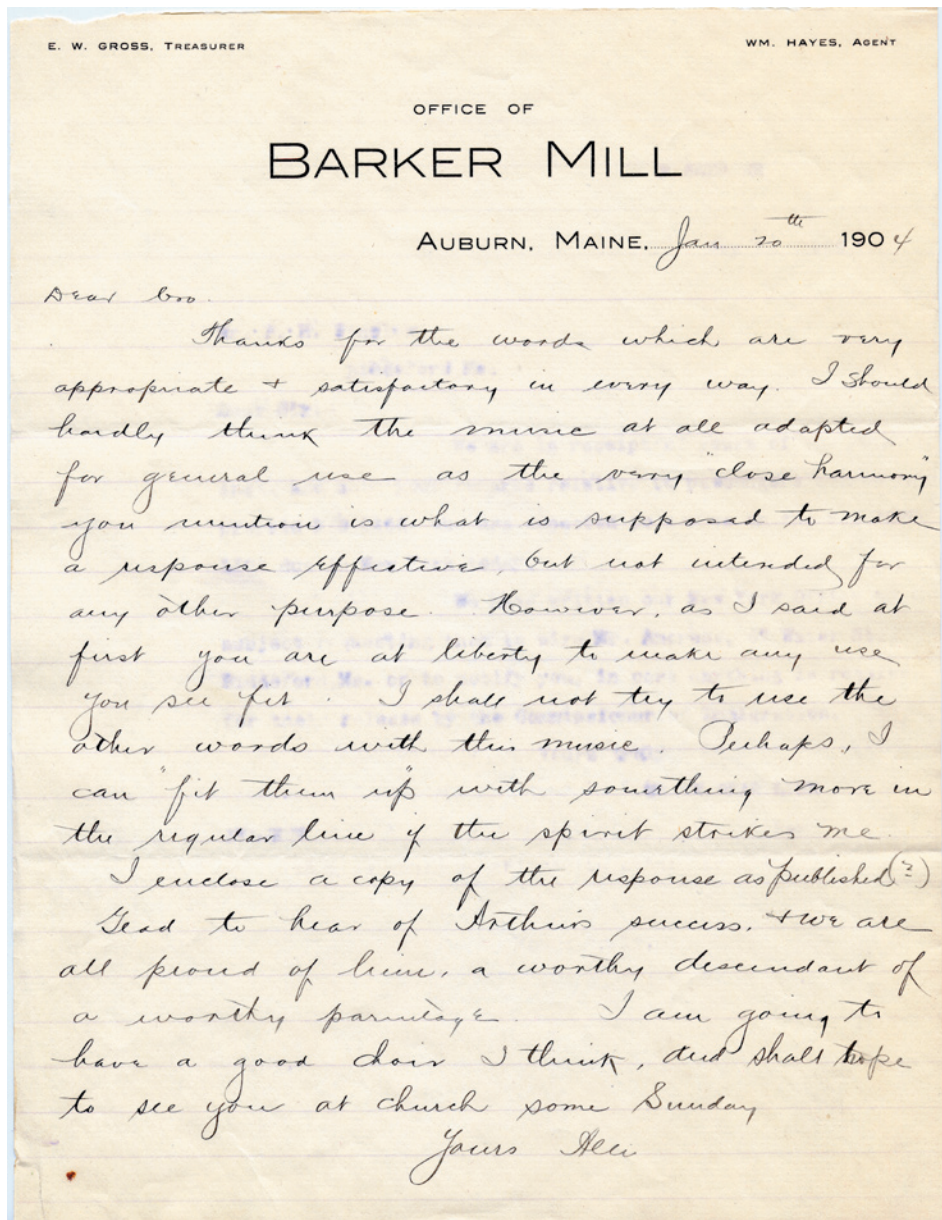 E. W. GROSS, TREASURER
WM. HAYES, AGENT
OFFICE OF
BARKER MILL
AUBURN, MAINE, Jan 20th 1904
Dear Bro.
Thanks for the words which are very
appropriate + satisfactory in every way. I should
hardly think the music at all adapted
for general use as the very "close harmony"
you mention is what is supposed to make
a response effective, but not intended for
any other purpose. However, as I said at
first you are at liberty to make any use
you see fit. I shall not try to use the
other words with this music. Perhaps, I
can "fit them up" with something more in
the regular line if the spirit strikes me.
I enclose a copy of the response as "published" (?)
Glad to hear of Arthur's success, + we are
all proud of him, a worthy descendant of
a worthy parentage. I am going to
have a good choir I think, and shall hope
to see you at church some Sunday
Yours